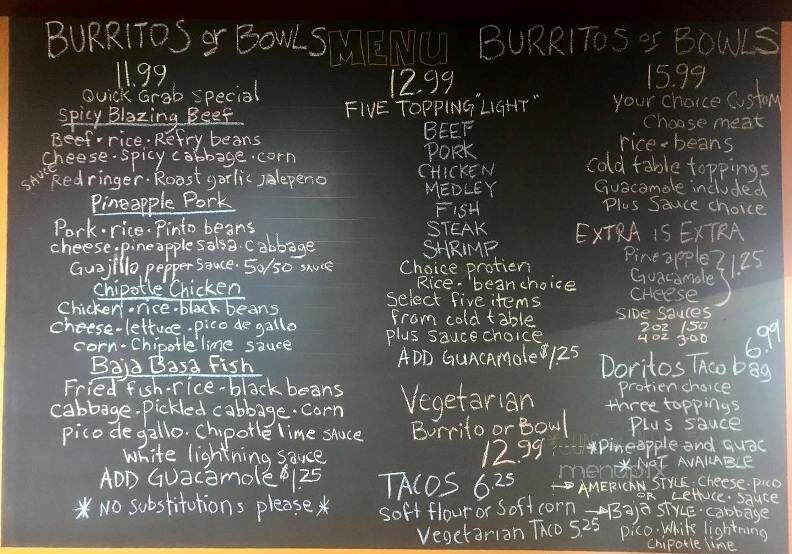 BURRITOS or BOWLS
11.99
Quick Grab Special
Spicy Blazing Beef
Beef · rice · Refry beans
Cheese · Spicy cabbage · corn
SAUCE Red ringer · Roast garlic Jalepeno
Pineapple Pork
Pork · rice · Pinto beans
cheese · pineapple salsa · Cabbage
Guajillo pepper Sauce · 50/50 sauce
Chipotle Chicken
Chicken · rice · black beans
Cheese · lettuce · pico de gallo
corn · Chipotle lime sauce
Baja Basa Fish
Fried fish · rice · black beans
cabbage · Pickled cabbage · Corn
pico de gallo · Chipotle lime sauce
White lightning sauce
ADD GUACAMOLE $1.25
* No substitutions please *
MENU
12.99
FIVE TOPPING "LIGHT"
BEEF
PORK
CHICKEN
MEDLEY
FISH
STEAK
SHRIMP
Choice protien
Rice · bean choice
Select five items
from cold table
plus Sauce choice
ADD GUACAMOLE $1.25
Vegetarian
Burrito or Bowl
12.99
TACOS 6.25
soft flour or Soft corn
Vegetarian TACO 5.25
BURRITOS or BOWLS
15.99
your choice Custom
Choose meat
rice · beans
Cold table toppings
Guacamole included
Plus Sauce choice
EXTRA IS EXTRA
Pineapple
Guacamole } 1.25
CHEESE
SIDE SAUCES
2 oz 1.50
4 oz 3.00
6.99
Doritos Taco bag
protien choice
three toppings
Plus sauce
*Pineapple and guac
* NOT AVAILABLE
menupix
→ AMERICAN STYLE · Cheese · pico
OR Lettuce · Sauce
→ Baja STYLE · cabbage
pico · White lightning
Chipotle lime